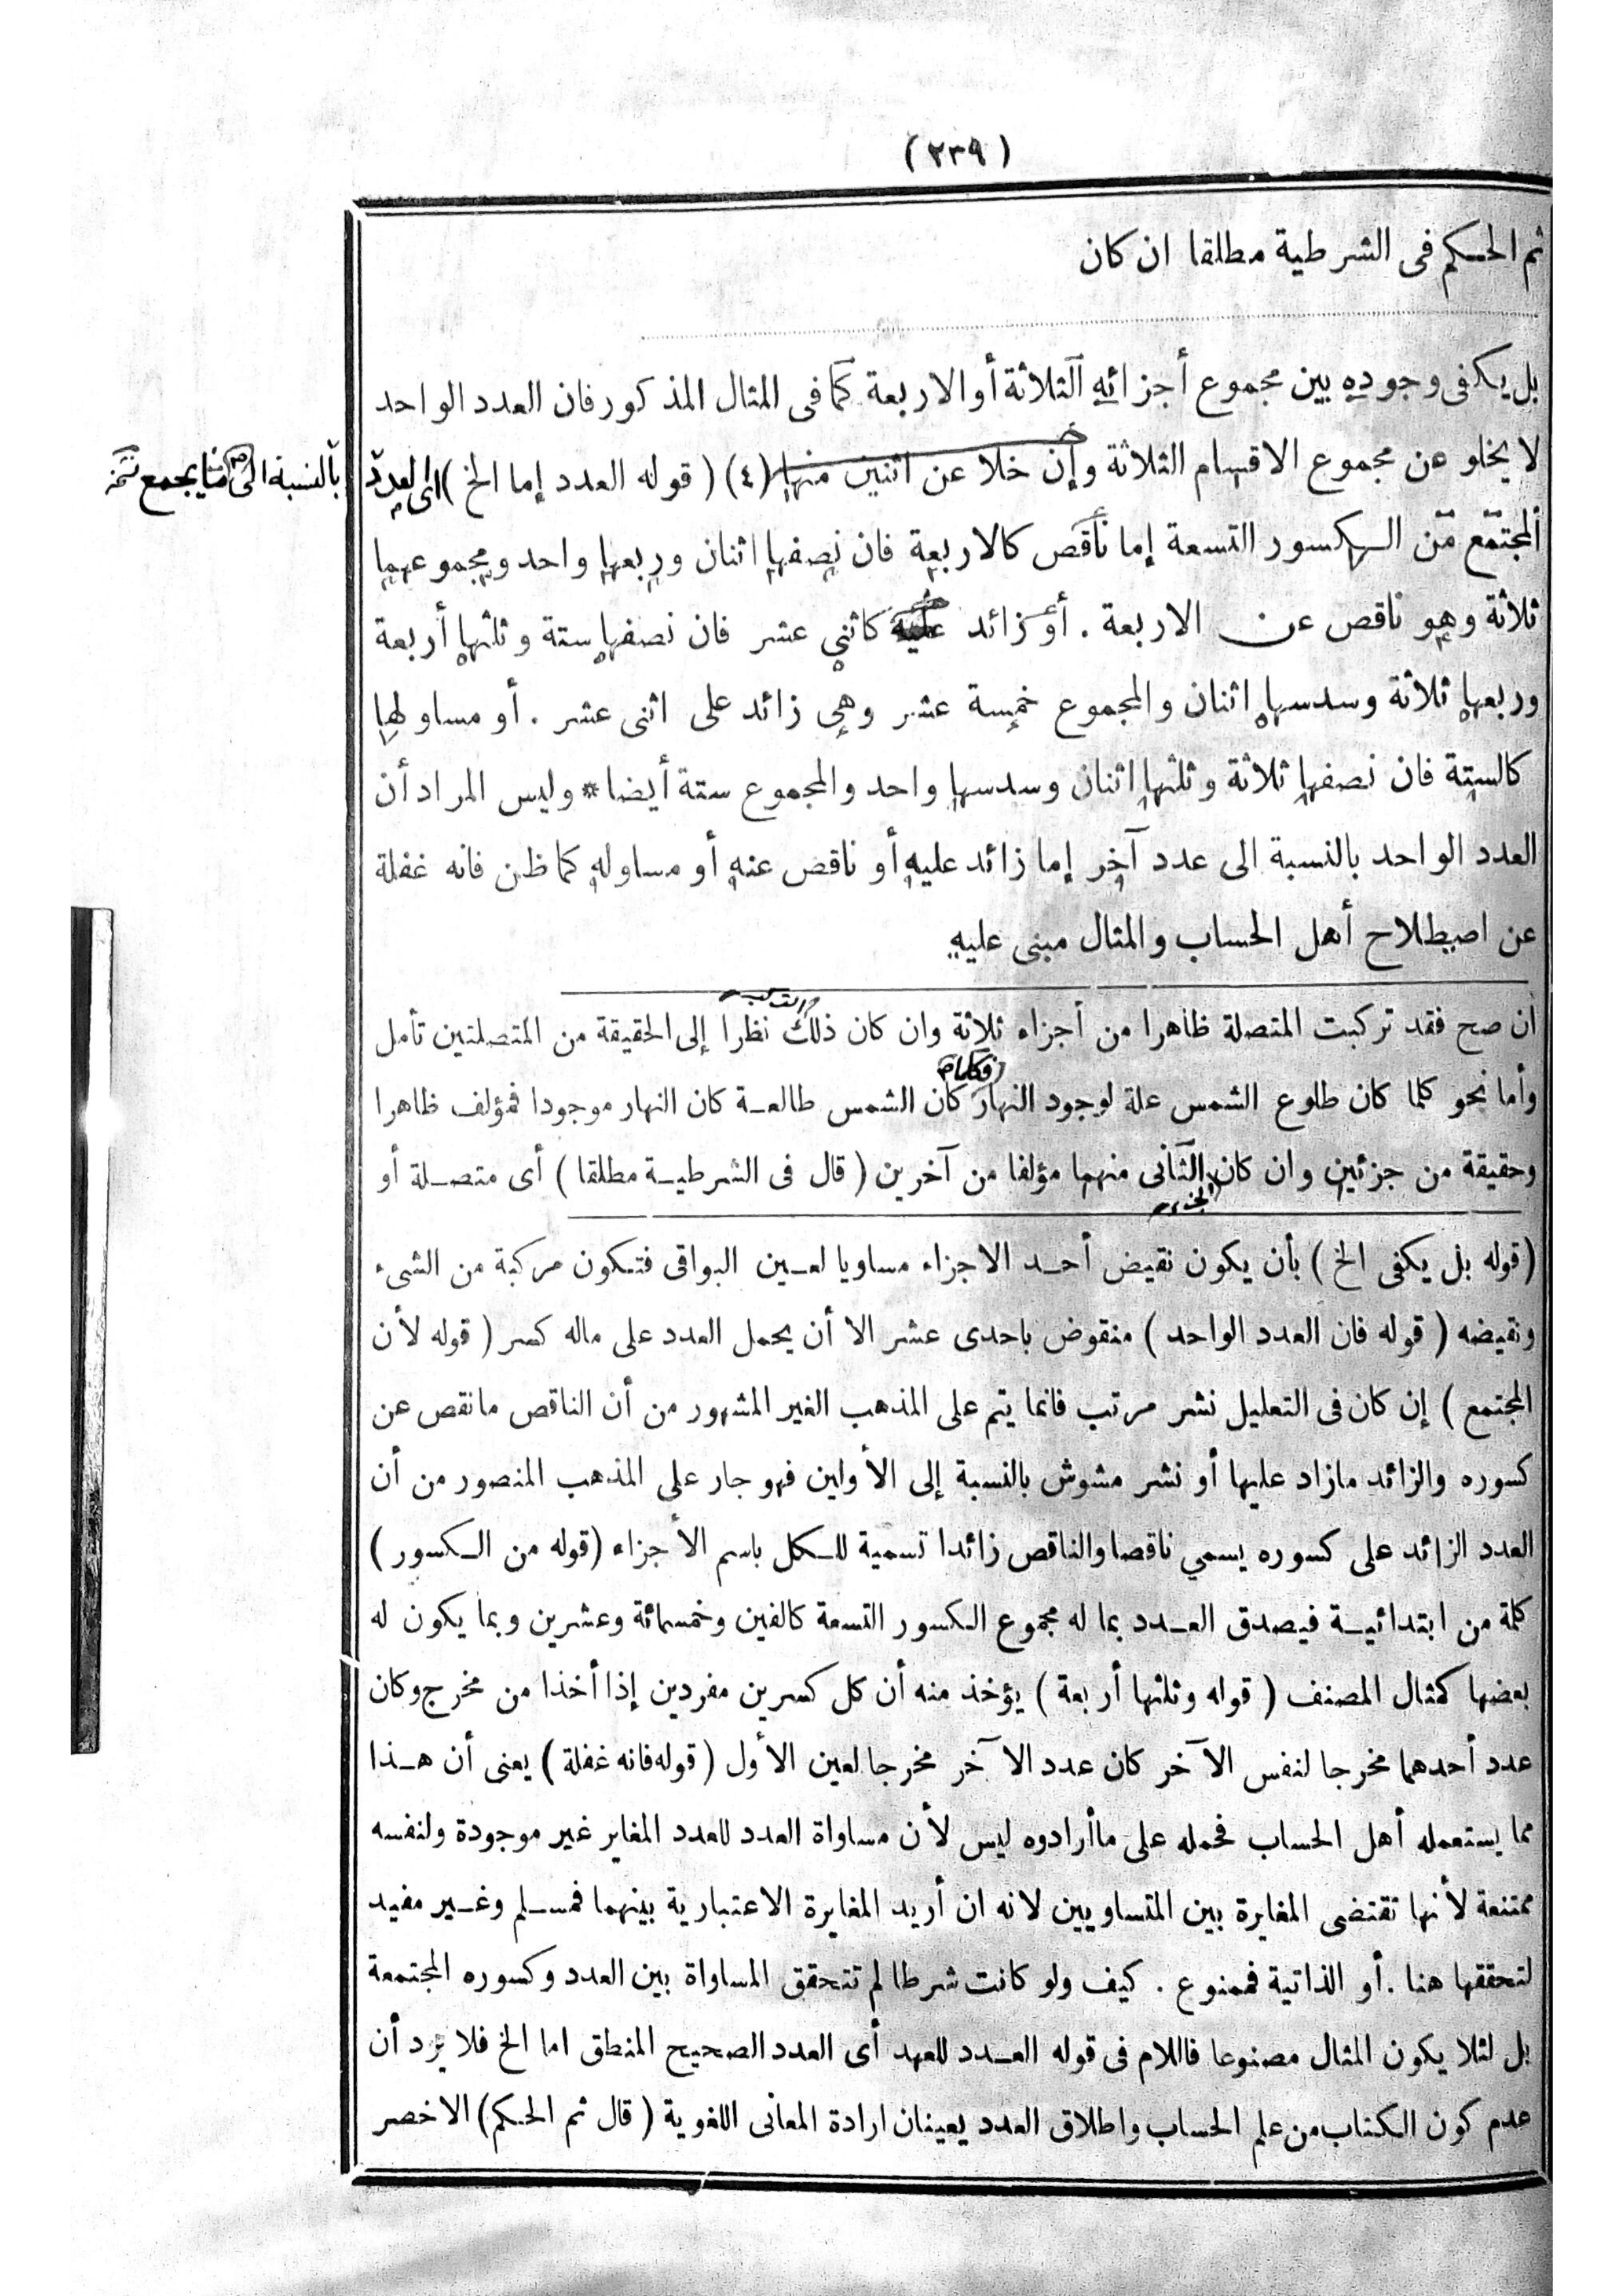 ( ٢٣٩ )
ثم الحكم فى الشرطية مطلقا ان كان
بل يكفى وجوده بين مجموع أجزائه الثلاثة أو الاربعة كما فى المثال المذكور فان العدد الواحد
لا يخلو عن مجموع الاقسام الثلاثة وإن خلا عن اثنين منها (٤) ( قوله العدد إما الخ ) اى العدد
بالنسبة الى
المجتمع من الكسور التسعة إما ناقص كالاربعة فان نصفها اثنان وربعها واحد ومجموعهما
ثلاثة وهو ناقص عن الاربعة . أو زائد عليه كاثني عشر فان نصفها ستة وثلثها أربعة
وربعها ثلاثة وسدسها اثنان والمجموع خمسة عشر وهى زائد على اثنى عشر . أو مساو لها
كالستة فان نصفها ثلاثة وثلثها اثنان وسدسها واحد والمجموع ستة أيضا * وليس المراد أن
العدد الواحد بالنسبة الى عدد آخر إما زائد عليه أو ناقص عنه أو مساو له كما ظن فانه غفلة
عن اصطلاح أهل الحساب والمثال مبنى عليه
ان صح فقد تركبت المتصلة ظاهرا من أجزاء ثلاثة وان كان ذلك نظرا إلى الحقيقة من المتصلتين تأمل
فكلما
وأما نحو كلما كان طلوع الشمس علة لوجود النهار كان الشمس طالعة كان النهار موجودا فمؤلف ظاهرا
وحقيقة من جزئين وان كان الثانى منهما مؤلفا من آخرين ( قال فى الشرطية مطلقا ) أى متصلة أو
الجزء
( قوله بل يكفى الخ ) بأن يكون نقيض أحد الاجزاء مساويا لعين البواقى فتكون مركبة من الشىء
ونقيضه ( قوله فان العدد الواحد ) منقوض باحدى عشر الا أن يحمل العدد على ماله كسر ( قوله لأن
المجتمع ) إن كان فى التعليل نشر مرتب فانما يتم على المذهب الغير المشهور من أن الناقص مانقص عن
كسوره والزائد مازاد عليها أو نشر مشوش بالنسبة إلى الأولين فهو جار على المذهب المنصور من أن
العدد الزائد على كسوره يسمي ناقصا والناقص زائدا تسمية للكل باسم الأجزاء ( قوله من الكسور )
كلمة من ابتدائية فيصدق العدد بما له مجموع الكسور التسعة كالفين وخمسمائة وعشرين وبما يكون له
بعضها كمثال المصنف ( قوله وثلثها أربعة ) يؤخذ منه أن كل كسرين مفردين إذا أخذا من مخرج وكان
عدد أحدهما مخرجا لنفس الآخر كان عدد الآخر مخرجا لعين الأول ( قوله فانه غفلة ) يعنى أن هذا
مما يستعمله أهل الحساب فحمله على ماأرادوه ليس لأن مساواة العدد للعدد المغاير غير موجودة ولنفسه
ممتنعة لأنها تقتضى المغايرة بين المتساويين لانه ان أريد المغايرة الاعتبارية بينهما فمسلم وغير مفيد
لتحققها هنا . أو الذاتية فممنوع . كيف ولو كانت شرطا لم تتحقق المساواة بين العدد وكسوره المجتمعة
بل لئلا يكون المثال مصنوعا فاللام فى قوله العدد للعهد أى العدد الصحيح المنطق اما الخ فلا يرد أن
عدم كون الكتاب من علم الحساب واطلاق العدد يعينان ارادة المعانى اللغوية ( قال ثم الحكم ) الاخصر